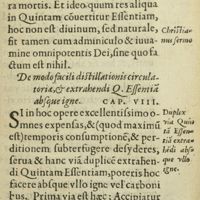 ra mortis. Et ideo quum res aliqua
in Quintam cõuertitur Eſſentiam,
hoc non eſt diuinum, ſed naturale:
fit tamen cum adminiculo & iuua-
mine omnipotentis Dei, ſine quo fa-
ctum eſt nihil.
Chriſtia-
nus ſermo
De modo facilis diſtillationis circula-
toriæ, & extrahendi Q. Eſſentiã
abſque igne. CAP. VIII.
SI in hoc opere excellentiſsimo o-
mnes expenſas, & (quod maximũ
eſt) temporis conſumptionẽ, & pe-
ditionem ſubterfugere deſyderas,
ſerua & hanc viã dupliciẽ extrahẽ
di Quintam Eſſentiam, poteris hoc
facere abſque vllo igne vel carboni
bus. Prima via eſt hæc: Accipiatur
Duplex
via Quin
tã Eſſen
tiã extra
hẽdi abſ
que vllo
igne.